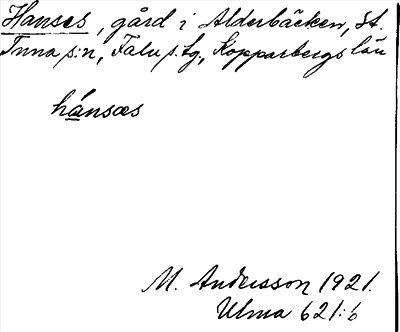 Hanses, gård i Alderbäcken, St.
Tuna s:n, Falu s. lg., Kopparbergs län
hánsæs
M. Andersson 1921.
Ulma 621:6